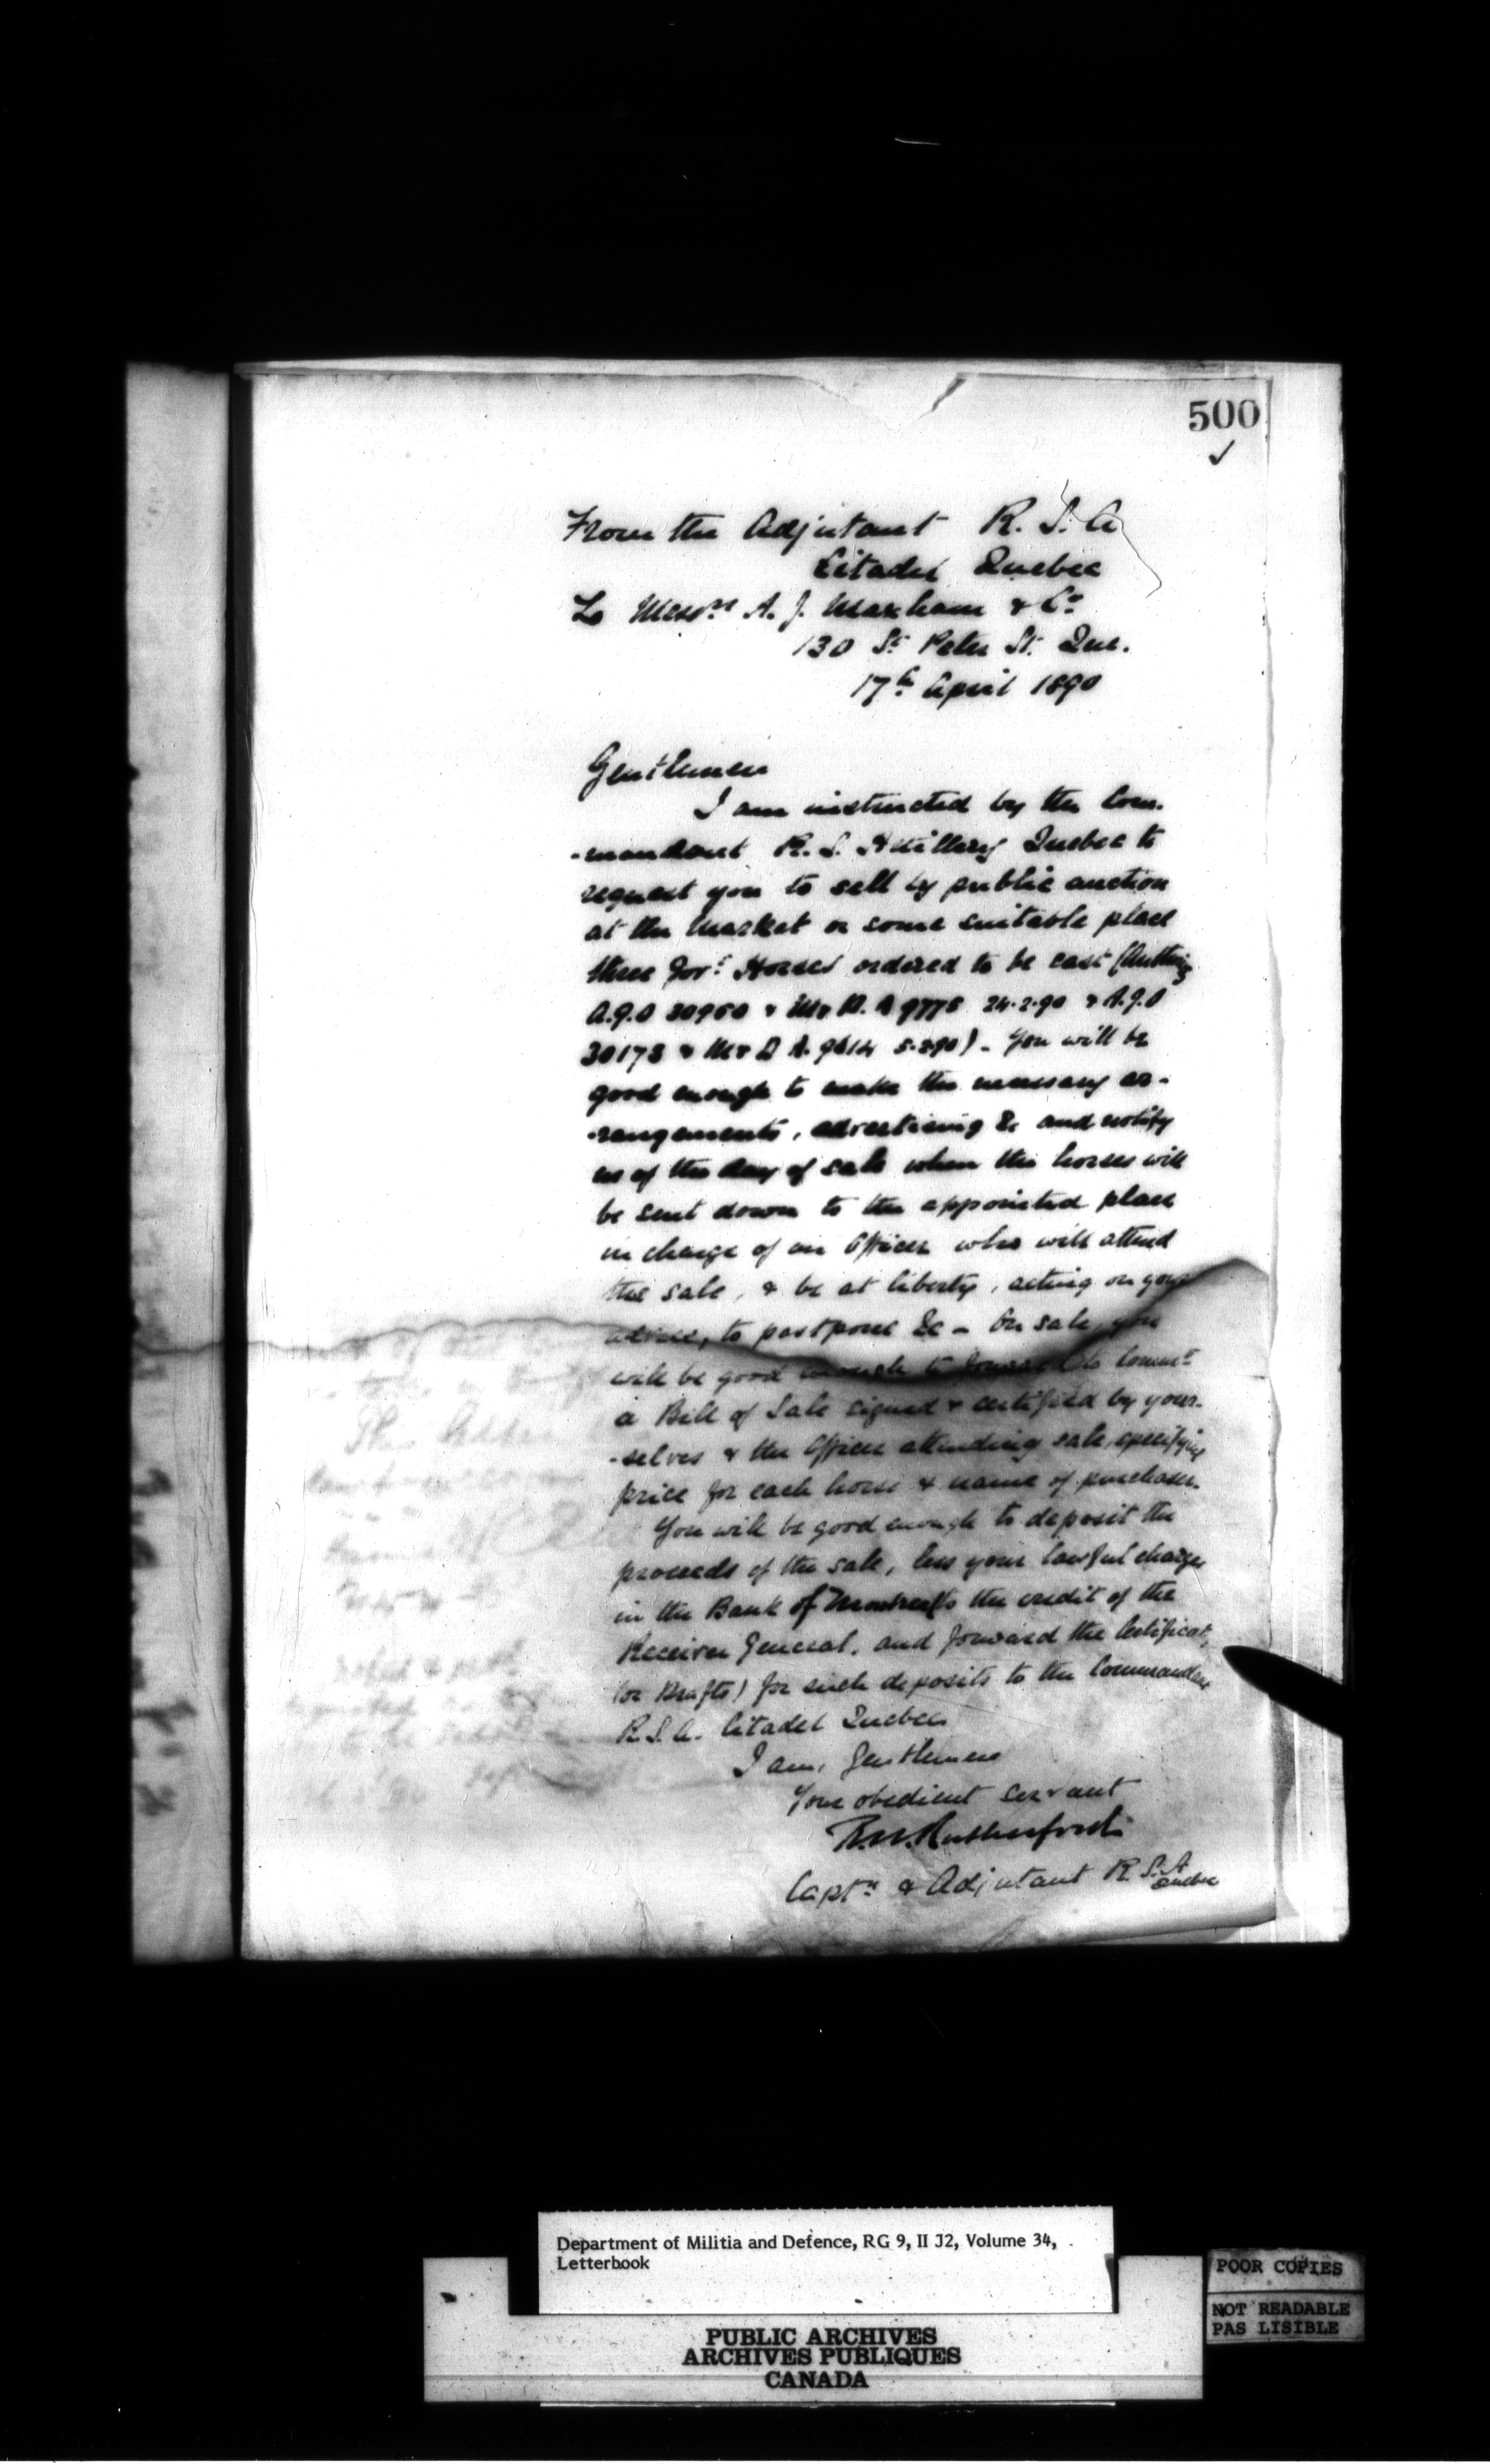 500
From the Adjutant R. S. A
Citadel Quebec
To Messrs A. J. Maxham & Co
130 St Peter St. Que.
17th April 1890
Gentlemen
I am instructed by the Com-
-mandant R. S. Artillery Quebec to
request you to sell by public auction
at the Market or some suitable place
three Govt Horses ordered to be cast (Authority
A.G.O 30960 & M & D. A 9778 24.2.90 & A.G.O
30178 & M & D A. 9614 5.2.90) - You will be
good enough to make the necessary ar-
-rangements, advertising &c and notify
us of the day of sale when the horses will
be sent down to the appointed place
in charge of an Officer who will attend
the sale, & be at liberty, acting on your
advice, to postpone &c - On sale, you
will be good enough to forward to Commt
a Bill of Sale signed & certified by your-
-selves & the Officer attending sale, specifying
price for each horse & name of purchaser.
You will be good enough to deposit the
proceeds of the sale, less your lawful charges
in the Bank of Montreal to the credit of the
Receiver General, and forward the Certificate
(or Drafts) for such deposits to the Commandant
R.S.A. Citadel Quebec
I am, Gentlemen
Your obedient servant
Rutherford
Captn & Adjutant R.S.A
Quebec
Department of Militia and Defence, RG 9, II J2, Volume 34,
Letterbook
POOR COPIES
NOT READABLE
PAS LISIBLE
PUBLIC ARCHIVES
ARCHIVES PUBLIQUES
CANADA